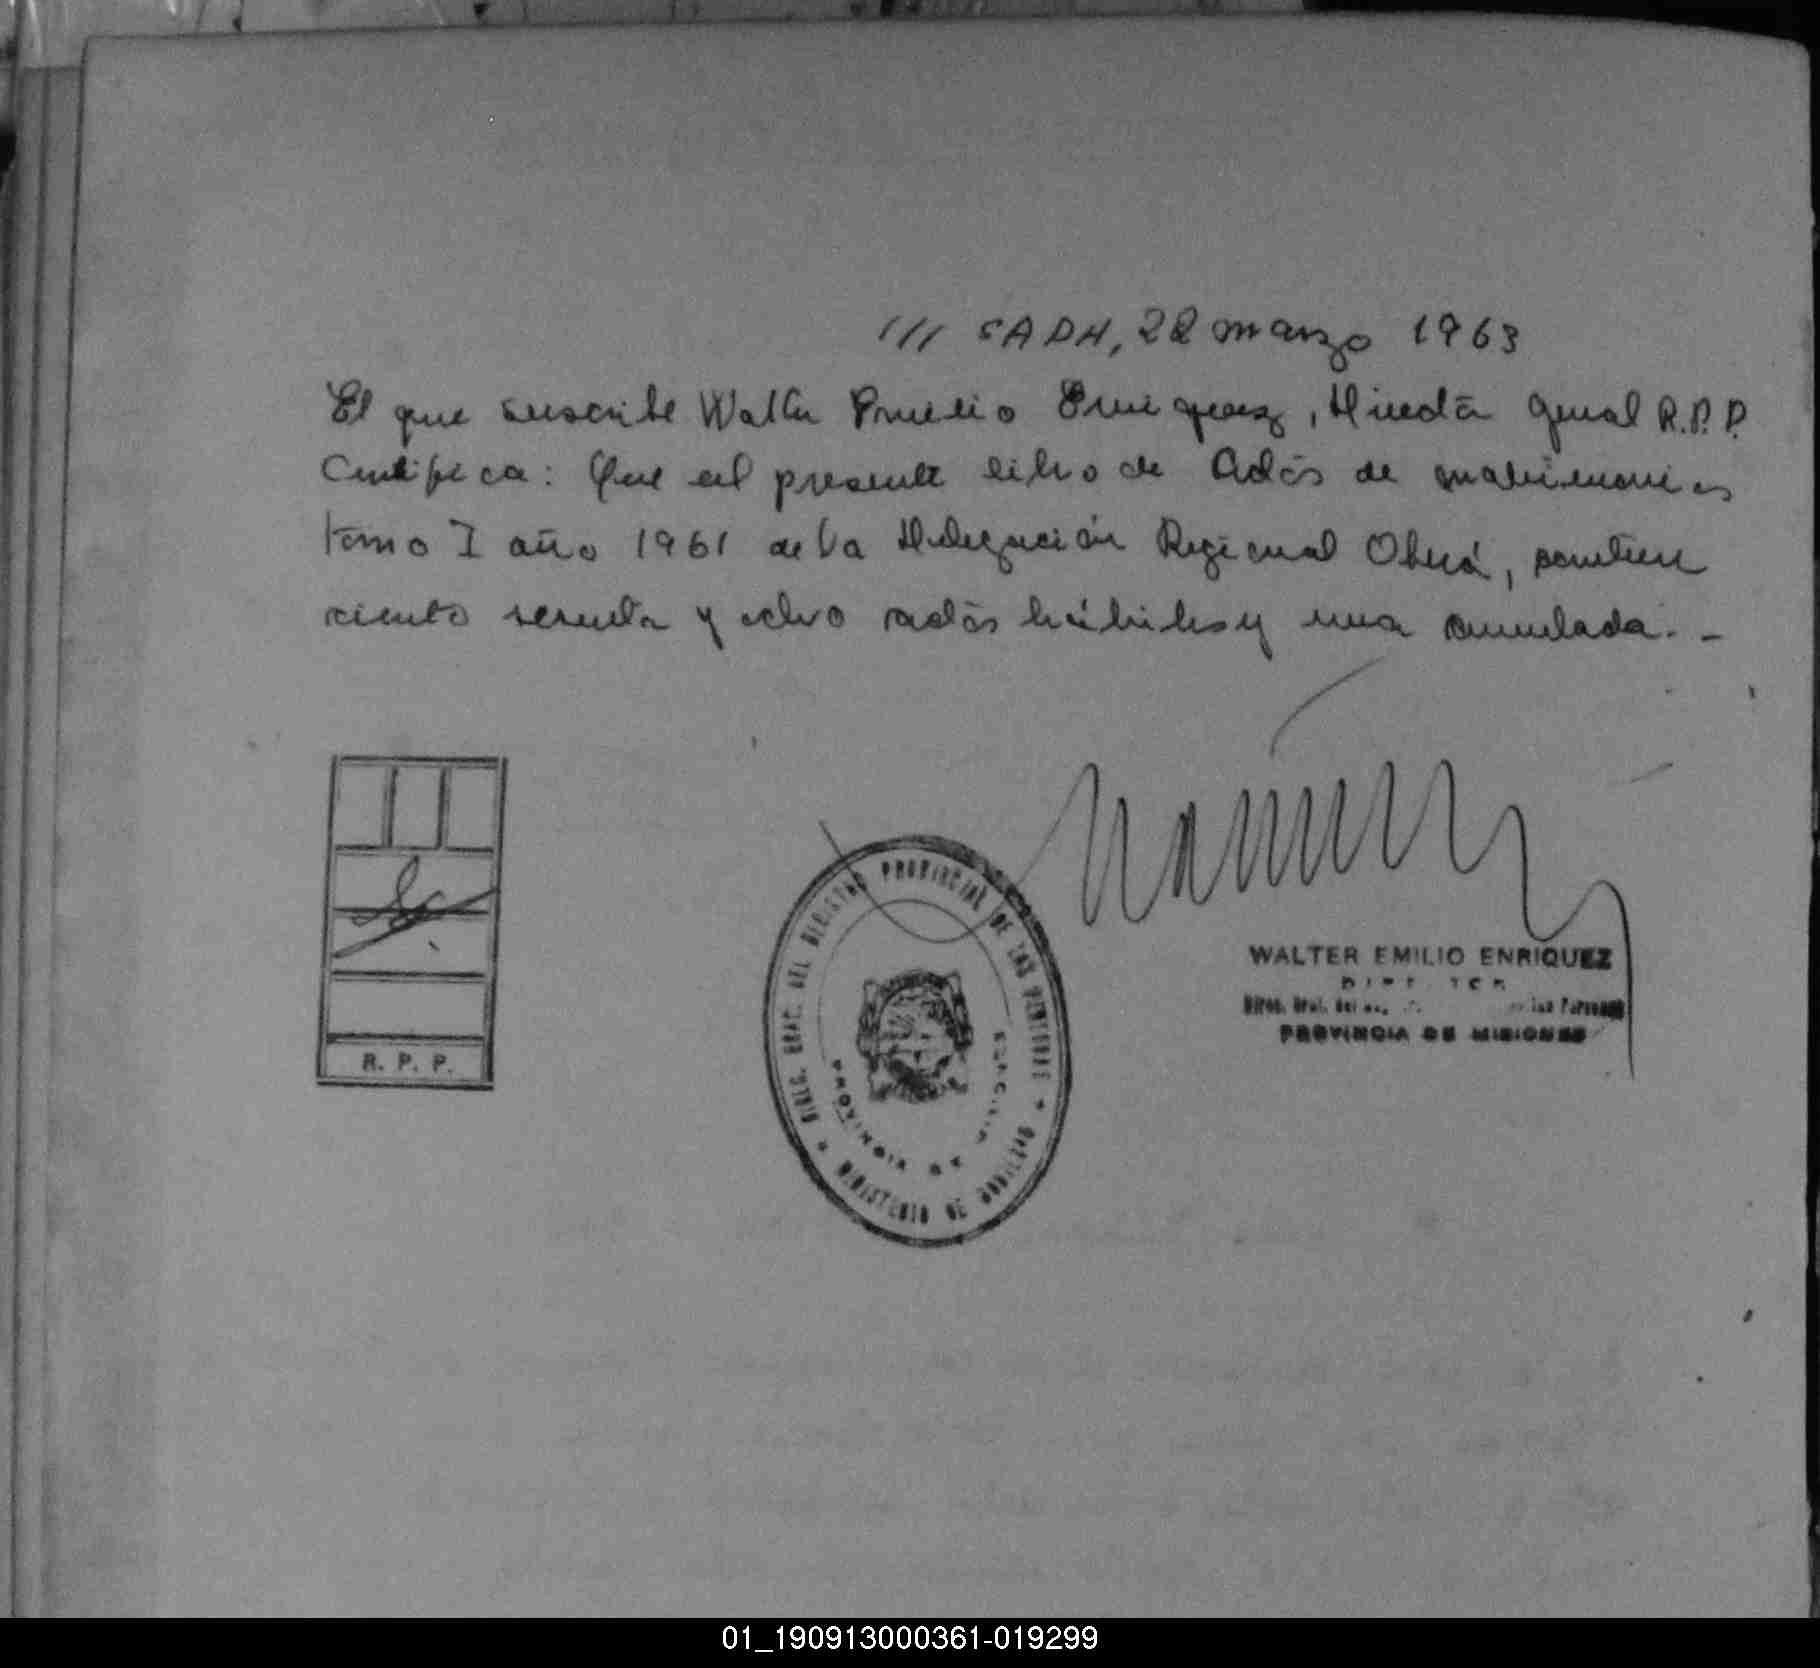 /// SADH, 22 marzo 1963
El que suscribe Walter Emilio Enriquez, Director General R.P.P.
Certifica: Que el presente libro de Actas de matrimonios
tomo I año 1961 de la Delegación Regional Oberá, contiene
ciento sesenta y ocho actas hábiles y una anulada. -
R. P. P.
DIREC. GRAL. DEL REGISTRO PROVINCIAL DE LAS PERSONAS
MINISTERIO DE GOBIERNO
PROVINCIA DE
WALTER EMILIO ENRIQUEZ
DIRECTOR
Direc. Gral. del
las Personas
PROVINCIA DE MISIONES
01_190913000361-019299